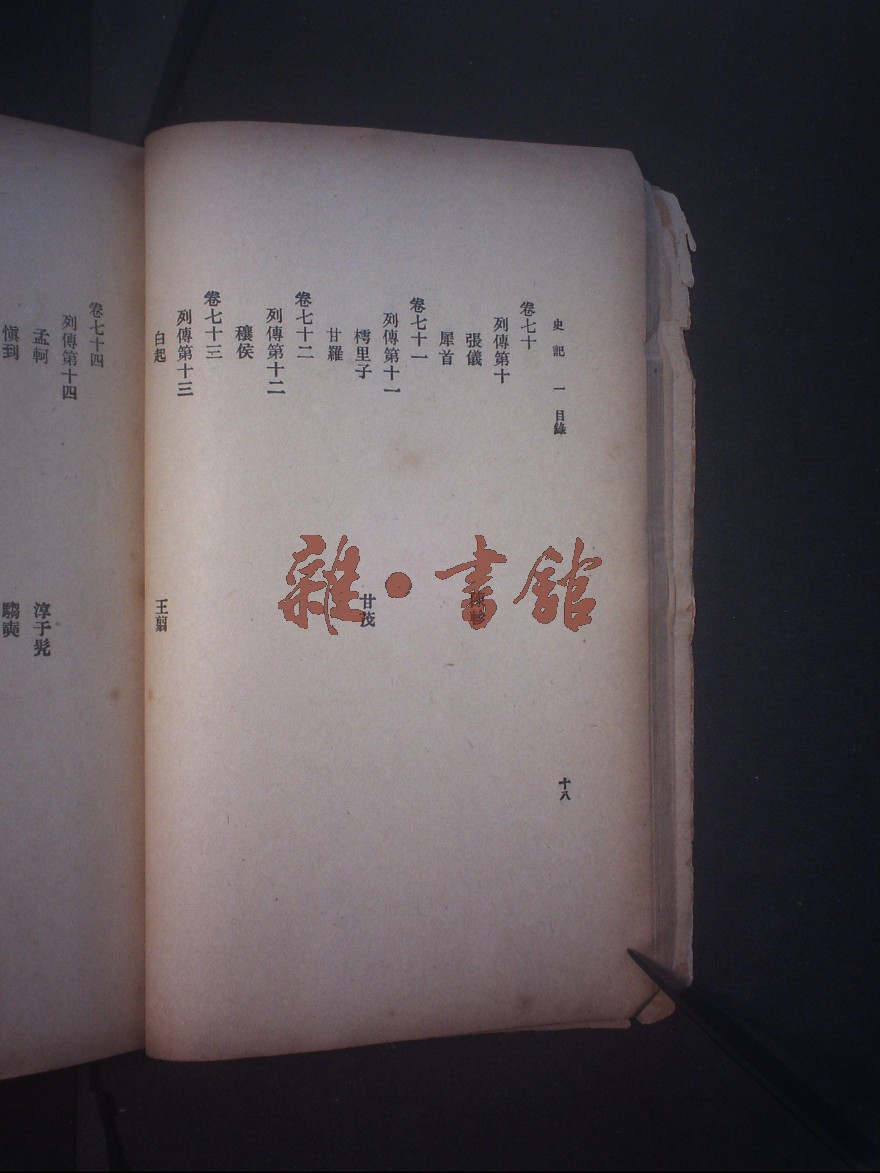 史記 一 目錄 十八
卷七十
列傳第十
張儀 陳軫
犀首
卷七十一
列傳第十一
樗里子 甘茂
甘羅
卷七十二
列傳第十二
穰侯
卷七十三
列傳第十三
白起 王翦
卷七十四
列傳第十四
孟軻 淳于髡
慎到 騶奭
雜·書館